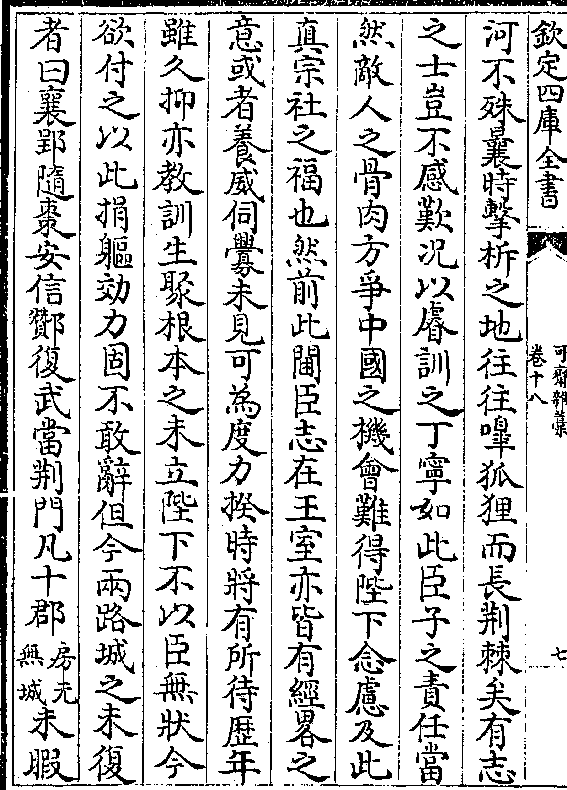 欽定四庫全書
可齋雜藁
卷十八
七
河不殊曩時擊柝之地往往嘷狐狸而長荆棘矣有志
之士豈不感歎況以睿訓之丁寧如此臣子之責任當
然敵人之骨肉方爭中國之機會難得陛下念慮及此
真宗社之福也然前此閫臣志在王室亦皆有經畧之
意或者養威伺釁未見可為度力揆時將有所待歴年
雖久抑亦教訓生聚根本之未立陛下不以臣無狀今
欲付之以此捐軀効力固不敢辭但今兩路城之未復
者曰襄郢隨棗安信酇復武當荆門凡十郡房元無城未暇